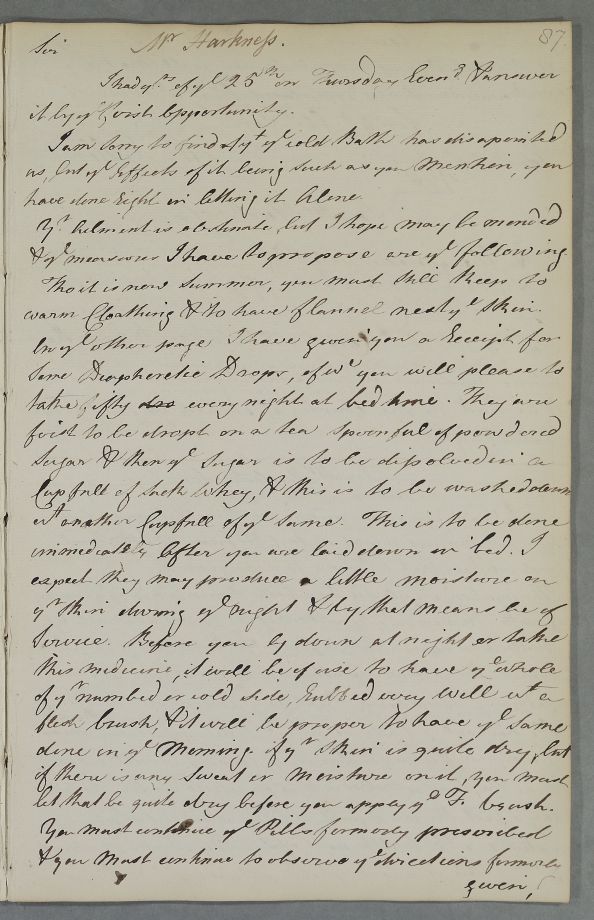 87.
Sir Mr. Harkness.
I had yrs of ye 25th on Thursday Evens & answer
it by ye first opportunity.
I am sorry to find yt ye cold Bath has disapointed
us, but ye Effects of it being such as you Mention, you
have done right in letting it alone.
Yr ailment is obstinate, but I hope may be mended
& ye measures I have to propose are ye following
Tho it is now Summer, you must still keep to
warm Cloathing & to have flannel next ye Skin.
In ye other page I have given you a Receipt for
Some Diaphoretic Drops, of wc you will please to
take fifty every night at bed time. They are
first to be dropt on a tea Spoonful of powdered
Sugar & then ye Sugar is to be dissolved in a
Cupfull of Sack whey, & this is to be washed down
wt another Cupfull of ye Same. This is to be done
immediately after you are laid down in bed. I
expect they may produce a little moisture on
yr Skin during ye night & by that means be of
Service. Before you ly down at night or take
this medicine, it will be of use to have ye whole
of yr numbed or cold side, Rubbed very well wt a
flesh brush, & it will be proper to have ye Same
done in ye Morning if yr Skin is quite dry, but
if there is any Sweat or Moisture on it, you must
let that be quite dry before you apply ye F. brush.
You must continue ye Pills formerly prescribed
& you must continue to observe ye directions formerly
given,